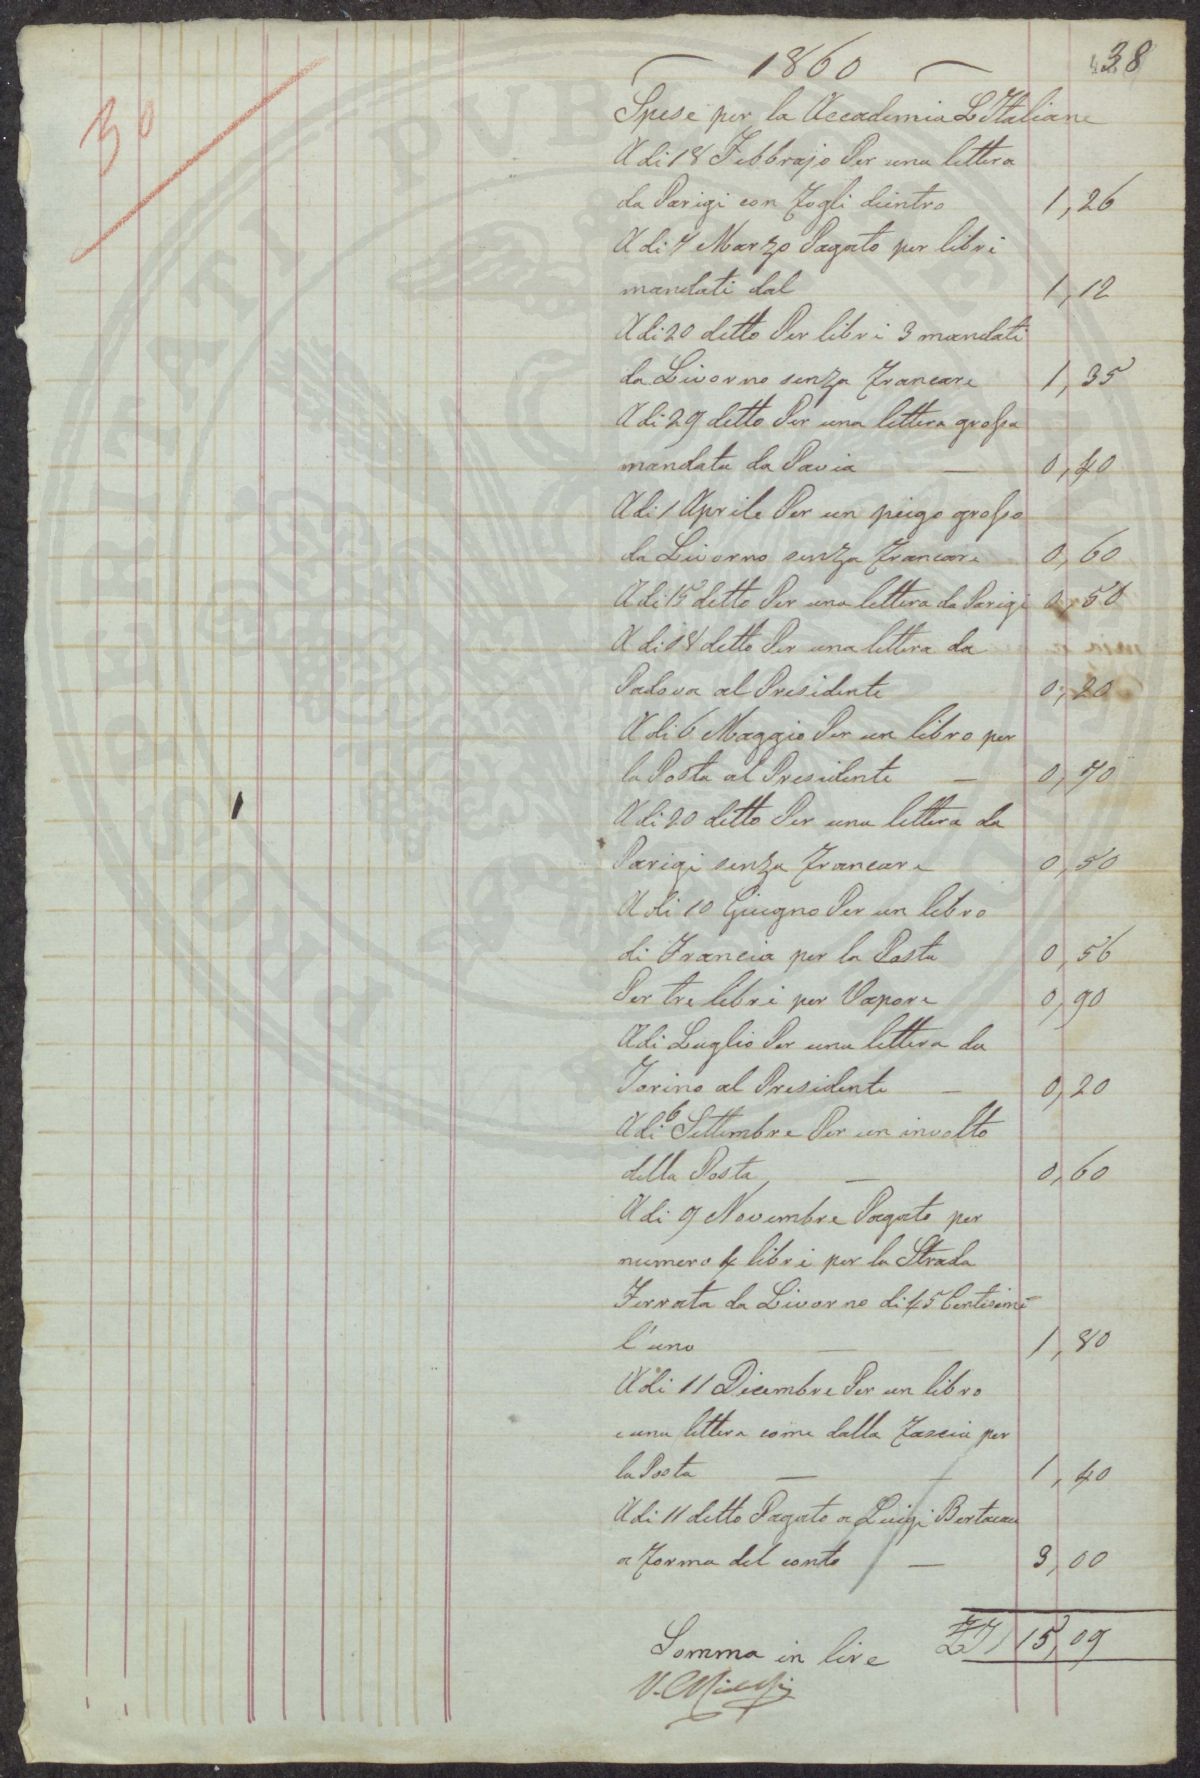 1860
38
30
Spese per la Accademia L'Italiane
A di 18 Febbrajo Per una lettera
da Parigi con Fogli dientro 1,26
A di 7 Marzo Pagato per libri
mandati dal 1,12
A di 20 detto Per libri 3 mandati
da Livorno senza Francare 1,35
A di 29 detto Per una lettera grossa
mandata da Pavia — 0,40
A di 1 Aprile Per un peigo grosso
da Livorno senza Francare 0,60
A di 15 detto Per una lettera da Parigi 0,50
A di 18 detto Per una lettera da
Padova al Presidente 0,20
A di 6 Maggio Per un libro per
la Posta al Presidente — 0,70
A di 20 detto Per una lettera da
Parigi senza Francare 0,50
A di 10 Giugno Per un libro
di Francia per la Posta 0,56
Per tre libri per Vapore 0,90
A di Luglio Per una lettera da
Torino al Presidente — 0,20
A di 6 Settembre Per un involto
della Posta — 0,60
A di 9 Novembre Pagato per
numero 4 libri per la Strada
Ferrata da Livorno di 45 Centesimi
l'uno — — 1,80
A di 11 Dicembre Per un libro
e una lettera come dalla Fascia per
la Posta — — 1,40
A di 11 detto Pagato a Luigi
a Forma del conto — 3,00
Somma in lire 15,09